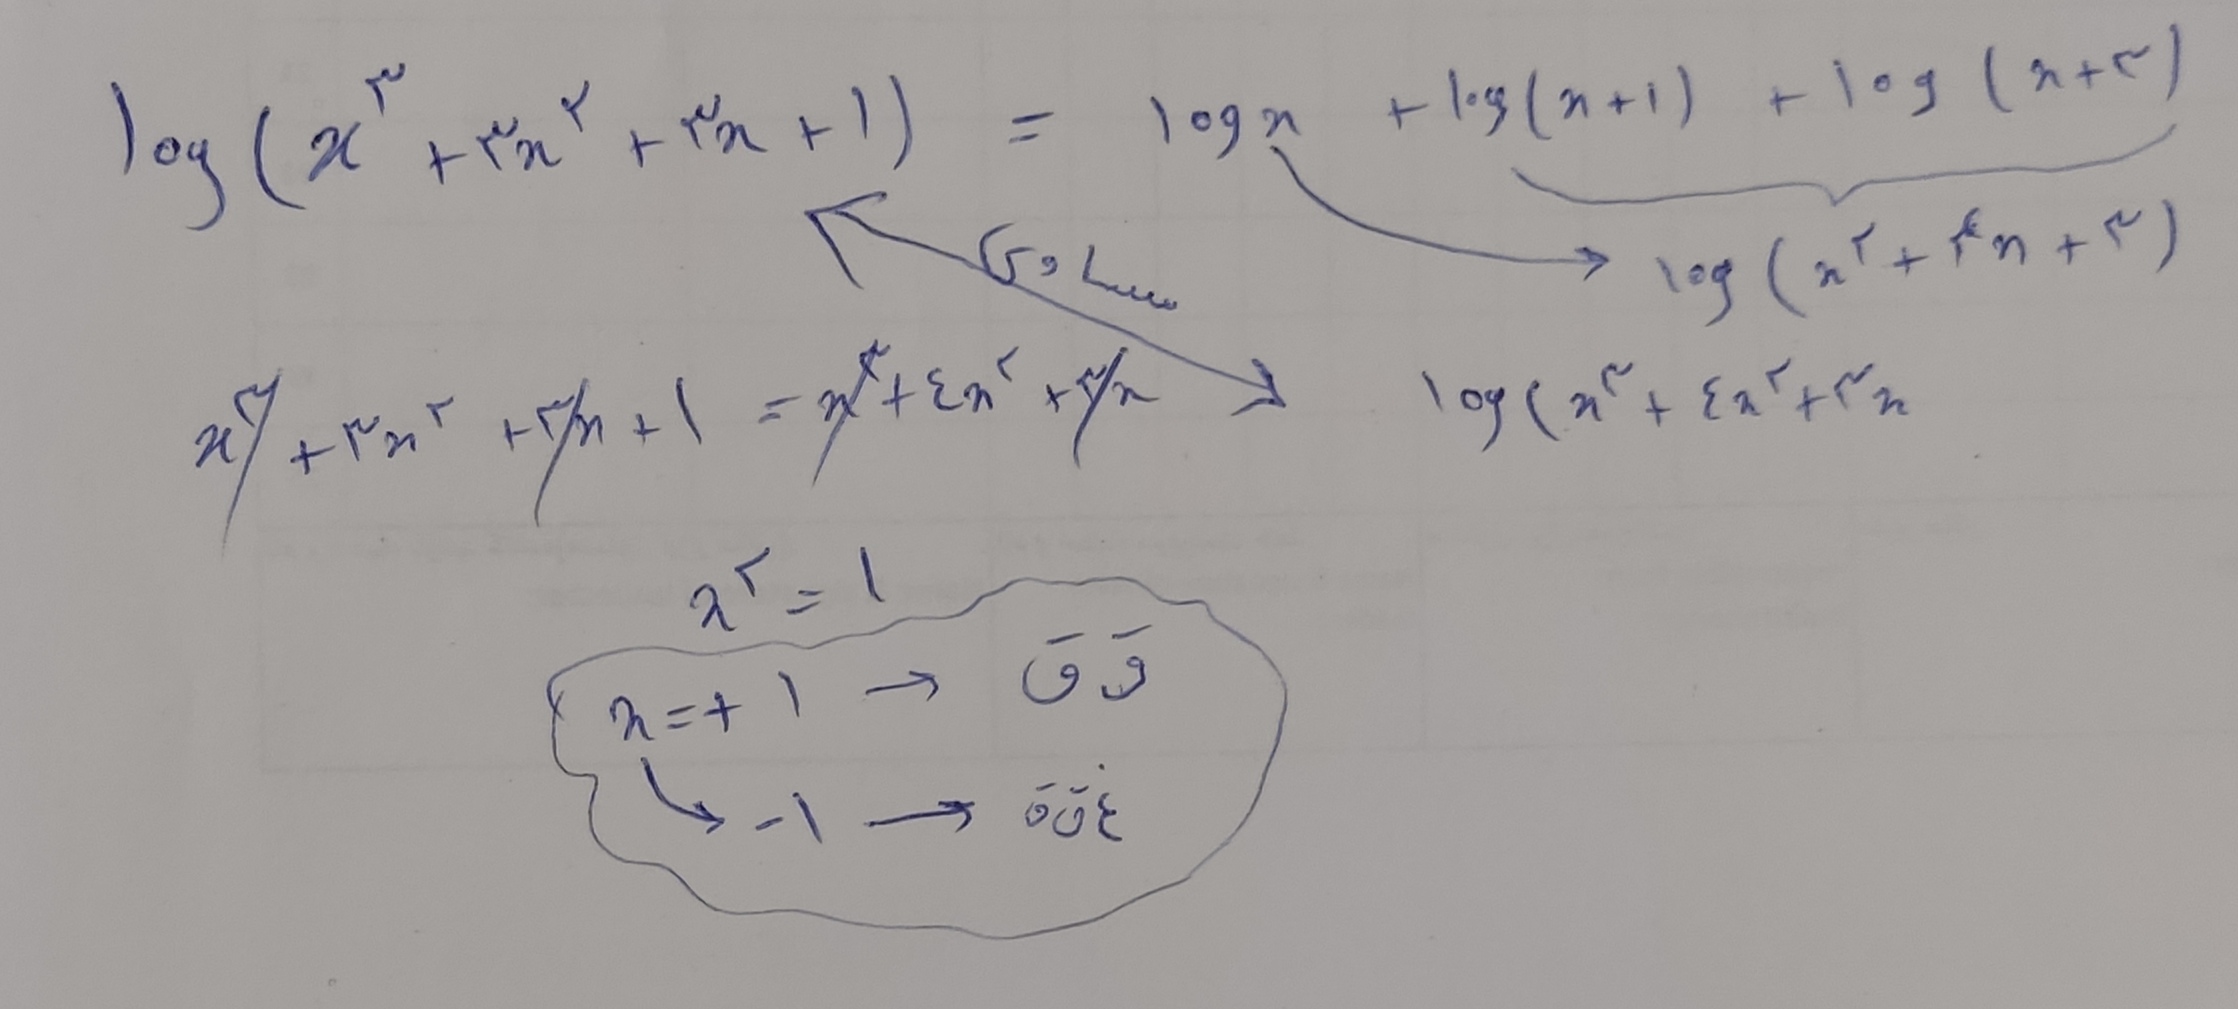 log(x^۳ + ۳x^۲ + ۳x + ۱) = log x + log(x+۱) + log(x+۳)
log(x^۲ + ۴x + ۳)
مساوی
x^۳ + ۳x^۲ + ۳x + ۱ = x^۳ + ٤x^۲ + ۳x
log(x^۳ + ٤x^۲ + ۳x
x^۲ = ۱
x = + ۱ → ق ق
-۱ → غ ق ق